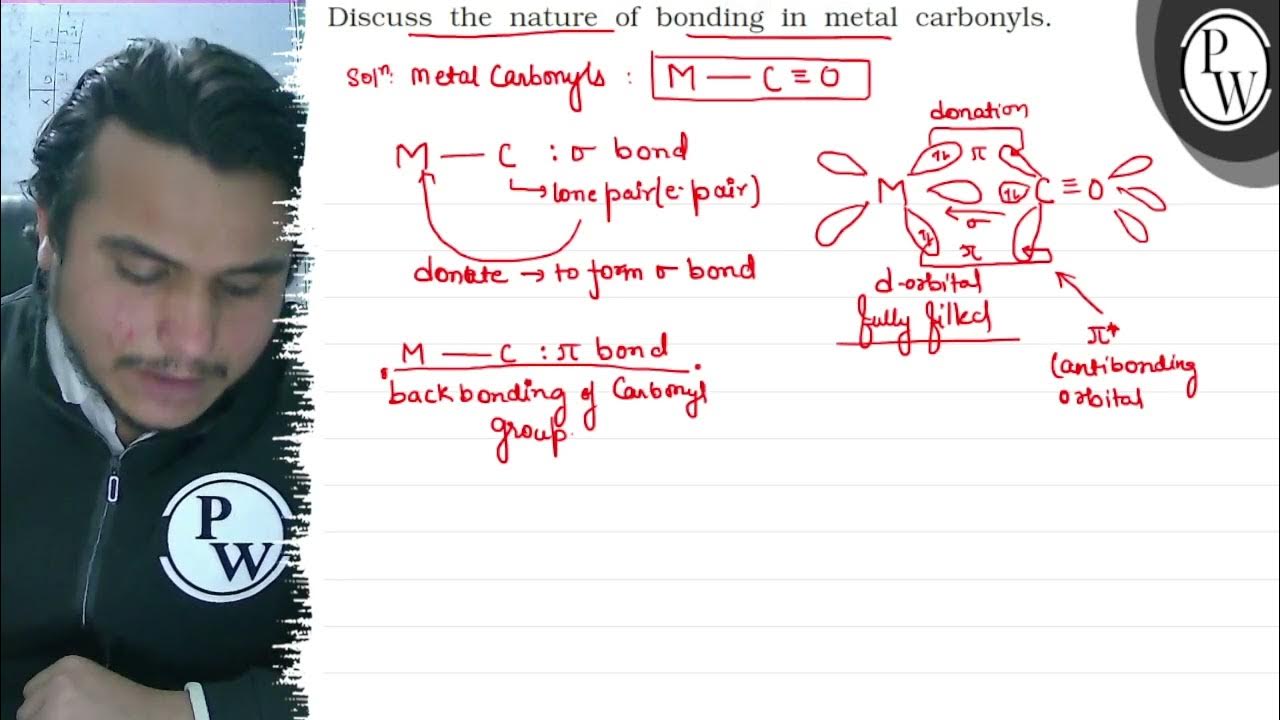 Discuss the nature of bonding in metal carbonyls.
Solⁿ: Metal Carbonyls : M — C ≡ O
M — C : σ bond
lone pair (e⁻ pair)
donate → to form σ bond
M — C : π bond
back bonding of Carbonyl
group.
donation
1L π
M 1L C ≡ O
σ
1L π
d-orbital
fully filled
π*
(antibonding
orbital
P
W
P
W